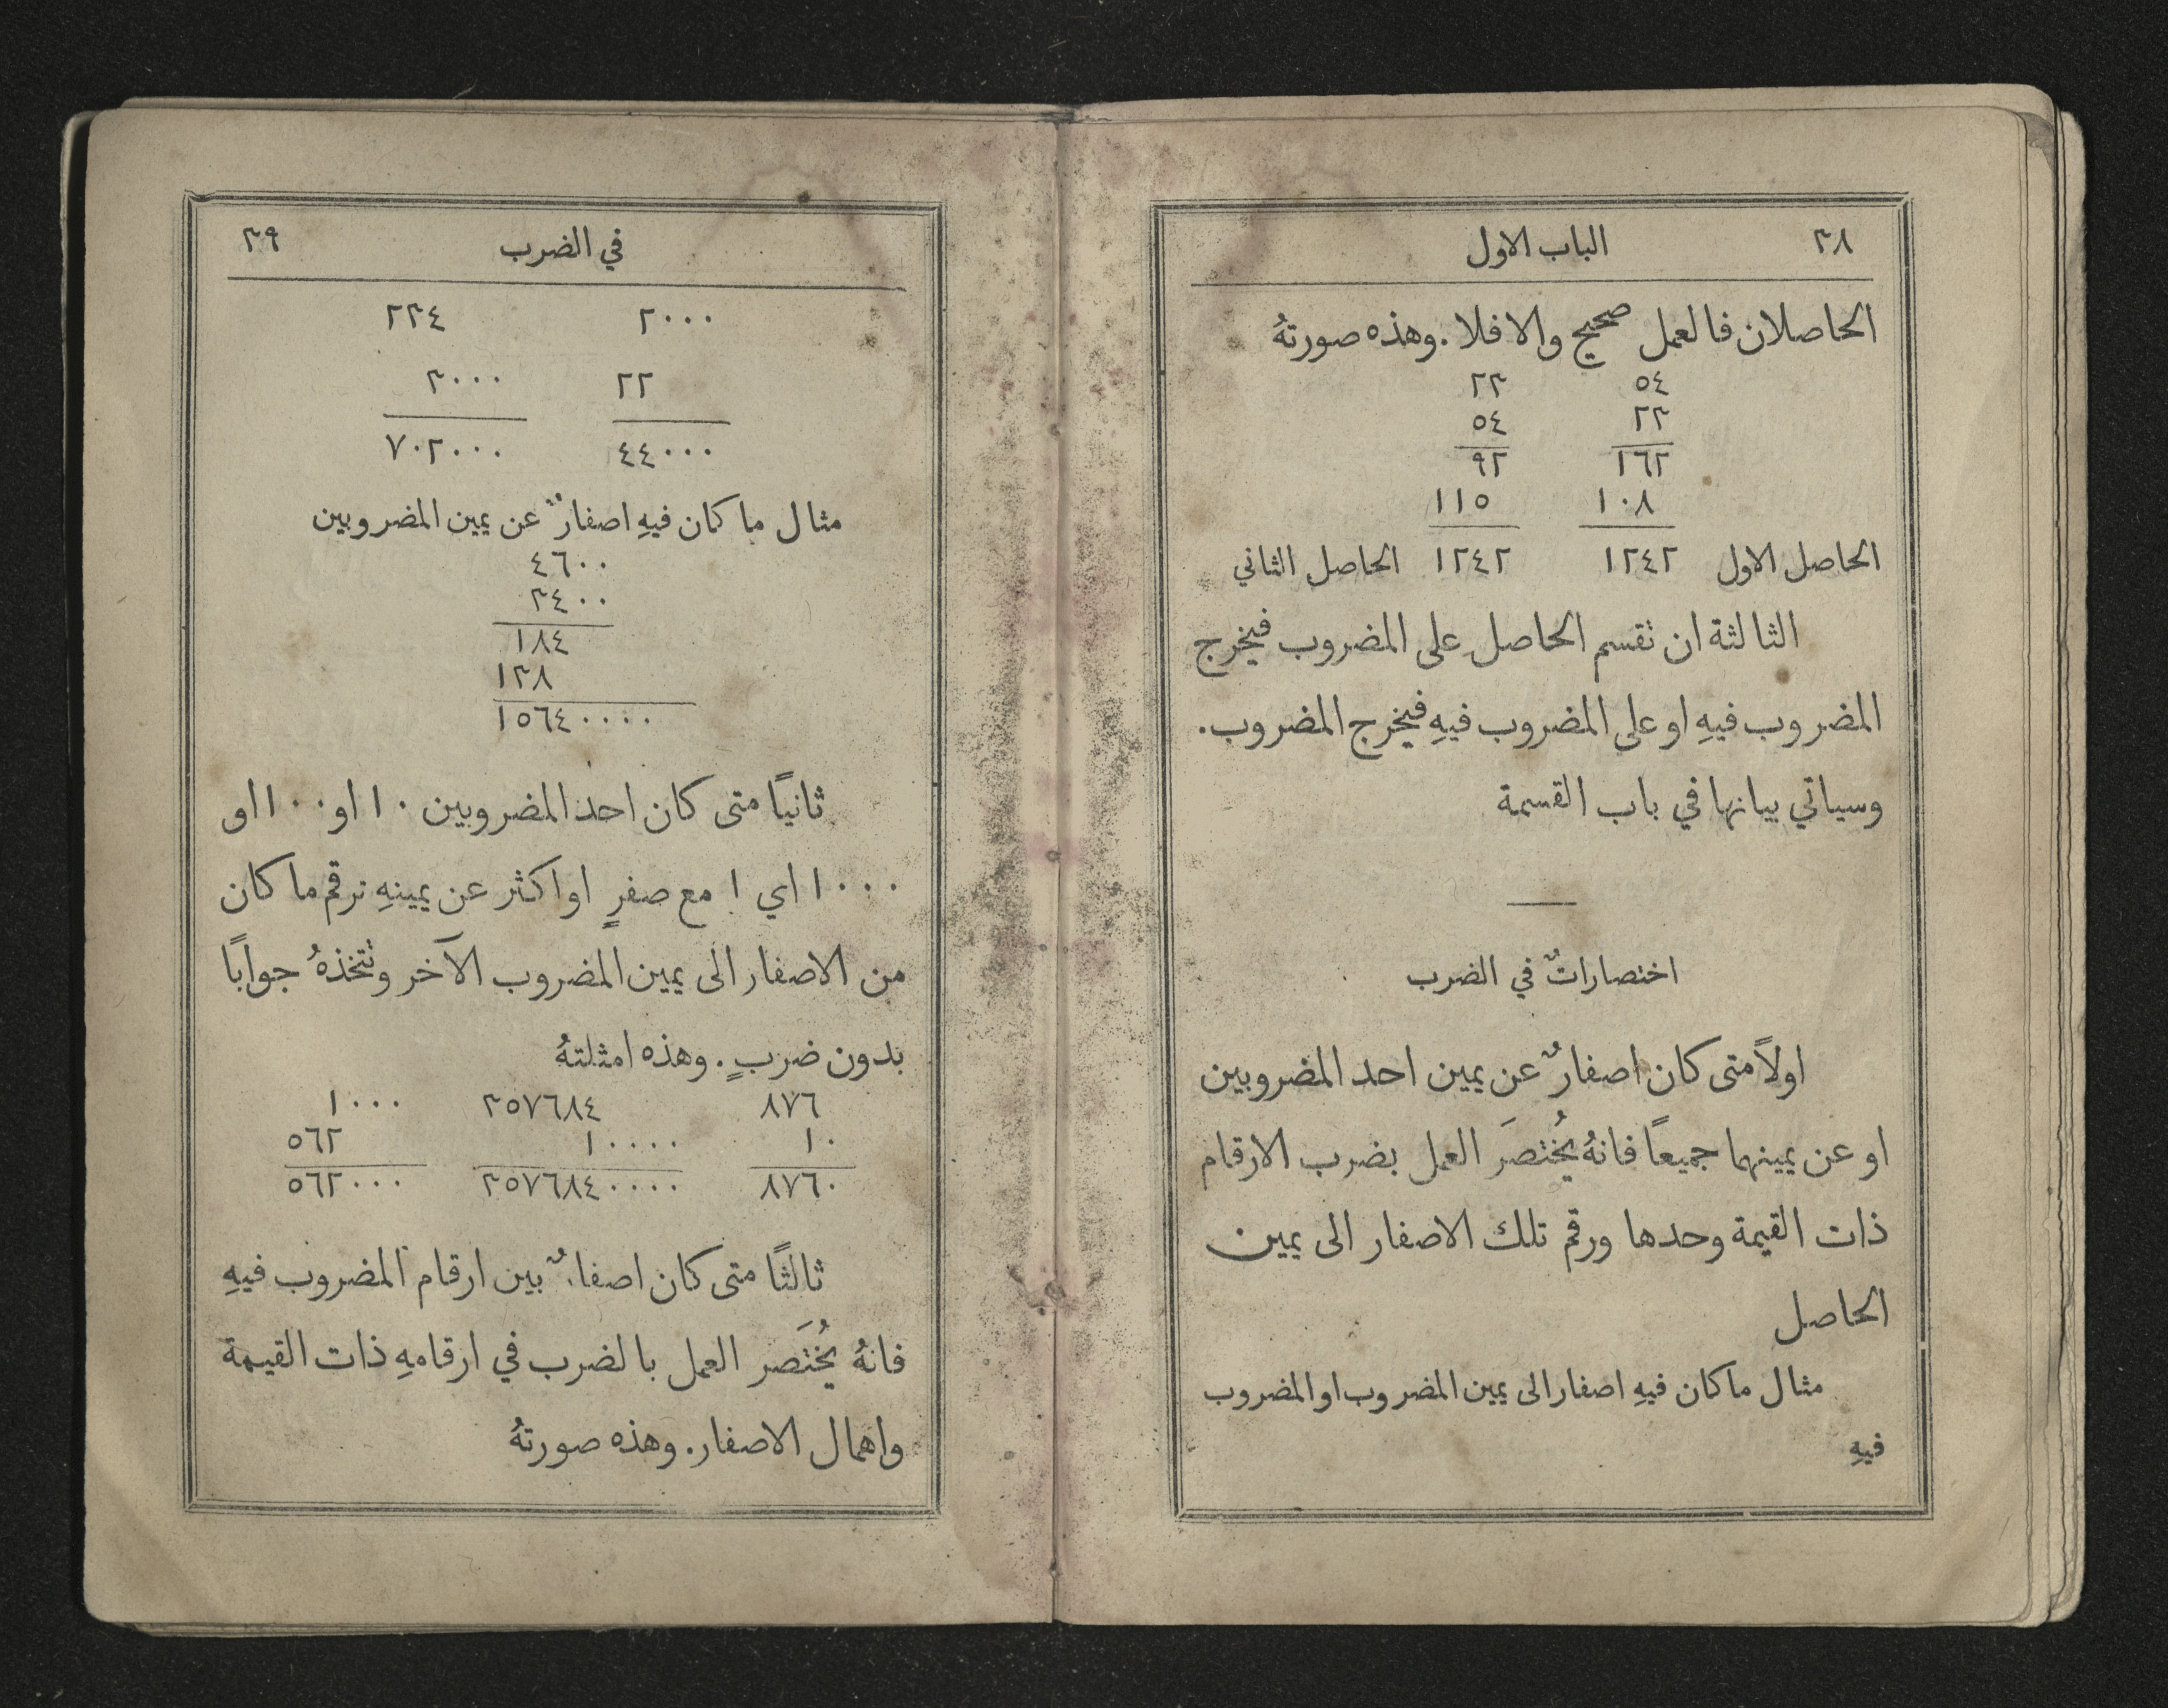 ٣٨ الباب الاول
الحاصلان فالعمل صحيح والا فلا. وهذه صورتهُ
٥٤ ٢٣
٢٣ ٥٤
١٦٢ ٩٢
١٠٨ ١١٥
الحاصل الاول ١٢٤٢ ١٢٤٢ الحاصل الثاني
الثالثة ان تقسم الحاصل على المضروب فيخرج
المضروب فيهِ او على المضروب فيهِ فيخرج المضروب.
وسياتي بيانها في باب القسمة
اختصاراتٌ في الضرب
اولاً متى كان اصفارٌ عن يمين احد المضروبين
او عن يمينهما جميعًا فانهُ يُختصَر العمل بضرب الارقام
ذات القيمة وحدها ورقم تلك الاصفار الى يمين
الحاصل
مثال ما كان فيهِ اصفار الى يمين المضروب او المضروب
فيهِ
في الضرب ٣٩
٢٠٠٠ ٢٣٤
٢٢ ٣٠٠٠
٤٤٠٠٠ ٧٠٢٠٠٠
مثال ما كان فيهِ اصفارٌ عن يمين المضروبين
٤٦٠٠
٣٤٠٠
١٨٤
١٣٨
١٥٦٤٠٠٠٠
ثانيًا متى كان احد المضروبين ١٠ او ١٠٠ او
١٠٠٠ اي ١ مع صفرٍ او اكثر عن يمينهِ نرقم ما كان
من الاصفار الى يمين المضروب الآخر ونتخذهُ جوابًا
بدون ضربٍ. وهذه امثلتهُ
٨٧٦ ٣٥٧٦٨٤ ١٠٠٠
١٠ ١٠٠٠٠ ٥٦٢
٨٧٦٠ ٣٥٧٦٨٤٠٠٠٠ ٥٦٢٠٠٠
ثالثًا متى كان اصفارٌ بين ارقام المضروب فيهِ
فانهُ يُختَصر العمل بالضرب في ارقامهِ ذات القيمة
واهمال الاصفار. وهذه صورتهُ